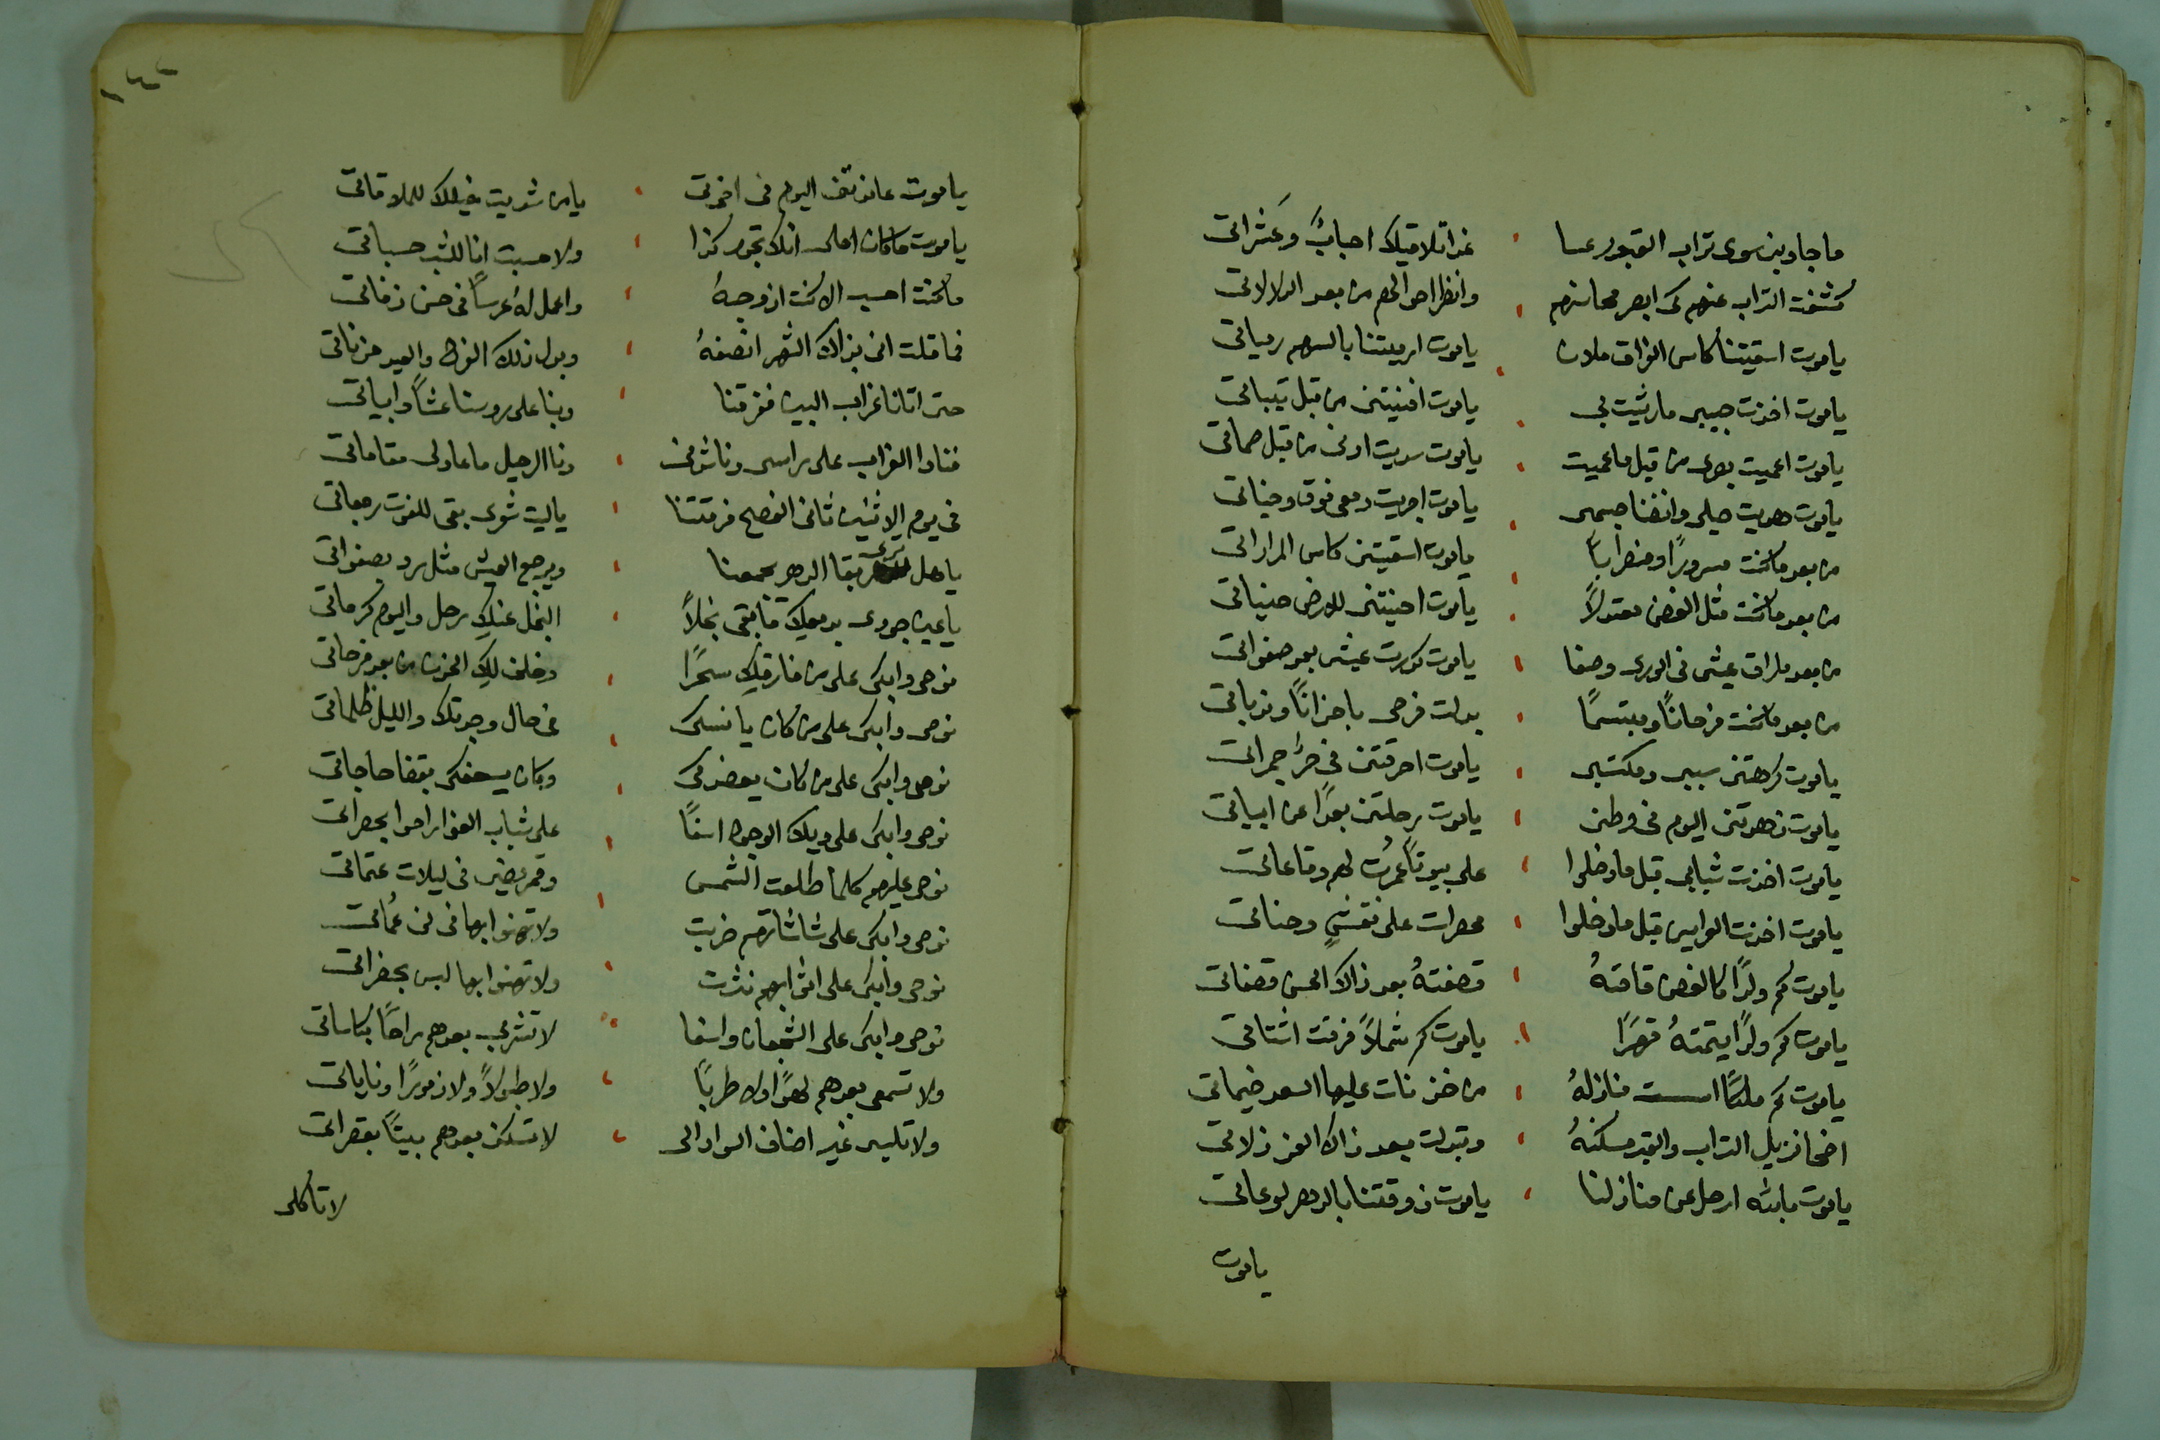 ما جاوبني سوى تراب القبور عسا ، غدا تلاقيك احبابٌ وعشراتي
كشفت التراب عنهم كي ابصر محاسنهم ، وانظر احوالهم من بعد الدلالاتي
ياموت اسقيتنا كاس الفراق ملان ، ياموت ارميتنا بالسهم رمياتي
ياموت اخذت حبيبي مارثيت لي ، ياموت افنيتني من قبل
ياموت اعميت بصري من قبل ماعميت ، ياموت من قبل
ياموت هديت حيلي وانضنا جسمي ، ياموت اجريت دمعي فوق وجناتي
من بعد ماكنت مسرورًا و ، ياموت اسقيتني كاس المراراتي
من بعد ماكنت مثل الغصن معتدلاً ، ياموت احنيتني للارض حنياتي
من بعد ماراق عيشي في الورى وصفا ، ياموت كدرت عيشي بعد صفواتي
من بعد ماكنت فرحانًا ومبتسمًا ، بدلت فرحي باحزانًا وندباتي
ياموت كرهتني سببي ومكسبي ، ياموت احرقتني في حرّ جمراتي
ياموت زهدتني اليوم في وطني ، ياموت رحلتني بعدًا عن ابياتي
ياموت اخذت شبابي قبل مادخلوا ، على بيوتاً عمرت لهم وقاعاتي
ياموت اخذت العرايس قبل مادخلوا ، على نقشٍ وحناتي
ياموت كم ولدًا كالغصن قامتهُ ، قصفتهُ بعد ذاك الحسن قصفاتي
ياموت كم ولدًا يتمتهُ قهرًا ، ياموت كم شملاً فرقت اشتاتي
ياموت كم ملكًا امست منازلهُ ، من عليها السعد خيماتي
اضحا نزيل التراب والقبر مسكنهُ ، وتبدلت بعد ذاك العز ذلاتي
ياموت بالله ارحل عن منازلنا ، ياموت ذوقتنا بالدهر لوعاتي
ياموت
١٤٢
ياموت اليوم في اخوتي ، يامن شديت خيلك للملاقاتي
ياموت ماكان املي انك تجور كذا ، ولا حسبت انا حسباتي
ماكنت احسب الا كنت ازوجهُ ، واعمل لهُ عرساً في حسن زفاتي
فما قلت اني بذاك الشهر انصفهُ ، وبدل ذلك الفرح والعيد حزناتي
حتى اتانا غراب البين ففرقنا ، وبنا على روسنا عشاً وابياتي
فنادا الغراب على راسي وناشدني ، ونا الرحيل ماعاد لي مقاماتي
في يوم الاثنين ثاني الفصح فرقتنا ، ياليت شعري بقى للفوت رجعاتي
ياهل ترى بقا الدهر يجمعنا ، ويرجع العيش مثل برد بصفواتي
ياعين جودي بدمعك مابقى بخلاً ، البخل عنكِ رحل واليوم كرماتي
نوحي وابكي على من فارقكِ سحرًا ، وخلف لكِ الحزن من بعد فرحاتي
نوحي وابكي على من كان يانسكي ، في حال وحدتك والليل ظلماتي
نوحي وابكي على من كان يعضدكي ، وكان يسعفكي بقضا حاجاتي
نوحي وابكي على ديك الوجوه اسفًا ، على شباب
نوحي عليهم كلما طلعت الشمس ، وقمر يضي في ليلات عتماتي
نوحي وابكي على شاشاتهم خربت ، ولا تهنوا بها في
نوحي وابكي على اثوابهم نثرت ، ولا تهنوا بها لبس
نوحي وابكي على الشجعان واسفا ، لا تشربي بعدهم راحًا بكاساتي
ولا تسمعي بعدهم لهوًا ولا طربًا ، ولا طبولاً ولا زمورًا وناياتي
ولا تلبسي غير اصناف السواد الي ، لا تسكني بعدهم بيتاً بقصراتي
لا تاكلي